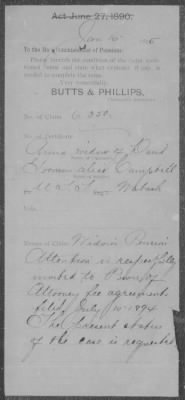 Act June 27, 1890.
Jan 10
To the Hon. Commissioner of Pensions:
Please furnish the condition of the claim
named below and state what evidence, if any, is
needed to complete the same.
Very respectfully,
BUTTS & PHILLIPS,
No. of Claim
No. of Certificate
widow of David
alias Campbell
Wabash
Note
Nature of Claim Widow's Pension
Attention is respectfully
invited to Power of
Attorney fee agreement
filed July 10-1894
The present status
of the case is requested